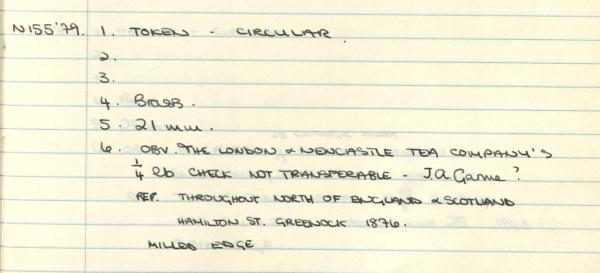 N155'79. 1. TOKEN - CIRCULAR.
2.
3.
4. Brass.
5. 21 mm.
6. OBV. THE LONDON & NEWCASTLE TEA COMPANY'S
1/4 lb CHECK NOT TRANSFERABLE - J.A. Game?
REV. THROUGHOUT NORTH OF ENGLAND & SCOTLAND
HAMILTON ST. GREENOCK 1876.
MILLED EDGE